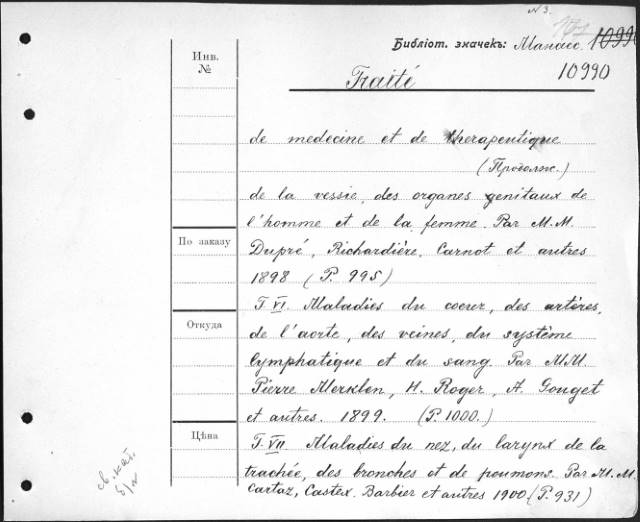 N 3.
101
Библіот. значекъ: Манасс. 10990
10990
Traité
Инв.
№
de medecine et de therapeutique
(Продолж.)
de la vessie, des organes genitaux de
l'homme et de la femme. Par M.M.
Dupré, Richardière, Carnot et autres
1898 (P. 995)
По заказу
T. VI. Maladies du coeur, des artères,
de l'aorte, des veines, du système
lymphatique et du sang. Par M.M.
Pierre Merklen, H. Roger, A. Gouget
et autres. 1899. (P. 1000.)
Откуда
T. VII. Maladies du nez, du larynx de la
trachée, des bronches et de poumons. Par M.M.
Cartaz, Castex, Barbier et autres 1900 (P. 931)
Цѣна
св. кат.
б/л